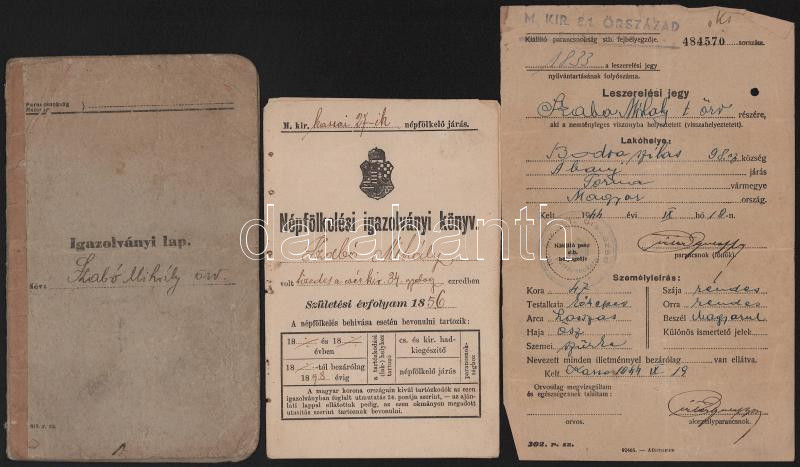 Parancsnokság
Igazolványi lap.
Neve Szabó Mihály örv.
M. kir. kassai 27-ik népfölkelő járás.
Népfölkelési igazolványi könyv.
Szabó Mihály
volt tizedes a csász. kir. 34. ezredben
Születési évfolyam 1856
A népfölkelés behivása esetén bevonulni tartozik:
18 és 18
évben
18 -tól bezárólag
1898 évig
a tartózkodási
(lak-) helyhez
tartozó
cs. és kir. had-
kiegészítő
népfölkelő járás
parancsnok-
sághoz
A magyar korona országain kivül tartózkodók az ezen
igazolványban foglalt utmutatás 24. pontja szerint, — az aján-
lati lappal ellátottak pedig, az ezen okmányon megadott
utasitás szerint tartoznak bevonulni.
M. KIR. 21. ŐRSZÁZAD
Kiállító parancsnokság stb. fejbélyegzője.
484570 sorszám.
1833 a leszerelési jegy
nyilvántartásának folyószáma.
Leszerelési jegy
Szabó Mihály t. örv részére,
aki a nemtényleges viszonyba helyeztetett (visszahelyeztetett).
Lakóhelye:
Bodvaszilas község
Abauj járás
Torna vármegye
Magyar ország.
Kelt 1944 évi IX hó 18-n.
Kiállító par.
bélyegzője
parancsnok (főnök).
Személyleírás:
Kora 47 Szája rendes
Testalkata közepes Orra rendes
Arca hosszas Beszél magyarul
Haja ősz Különös ismertető jelek.
Szemei szürke
Nevezett minden illetménnyel bezárólag van ellátva.
Kelt Kassa 1944 IX 19
Orvosilag megvizsgáltam
és egészségesnek találtam:
orvos.
alosztályparancsnok.
302. r. sz.
darabanth